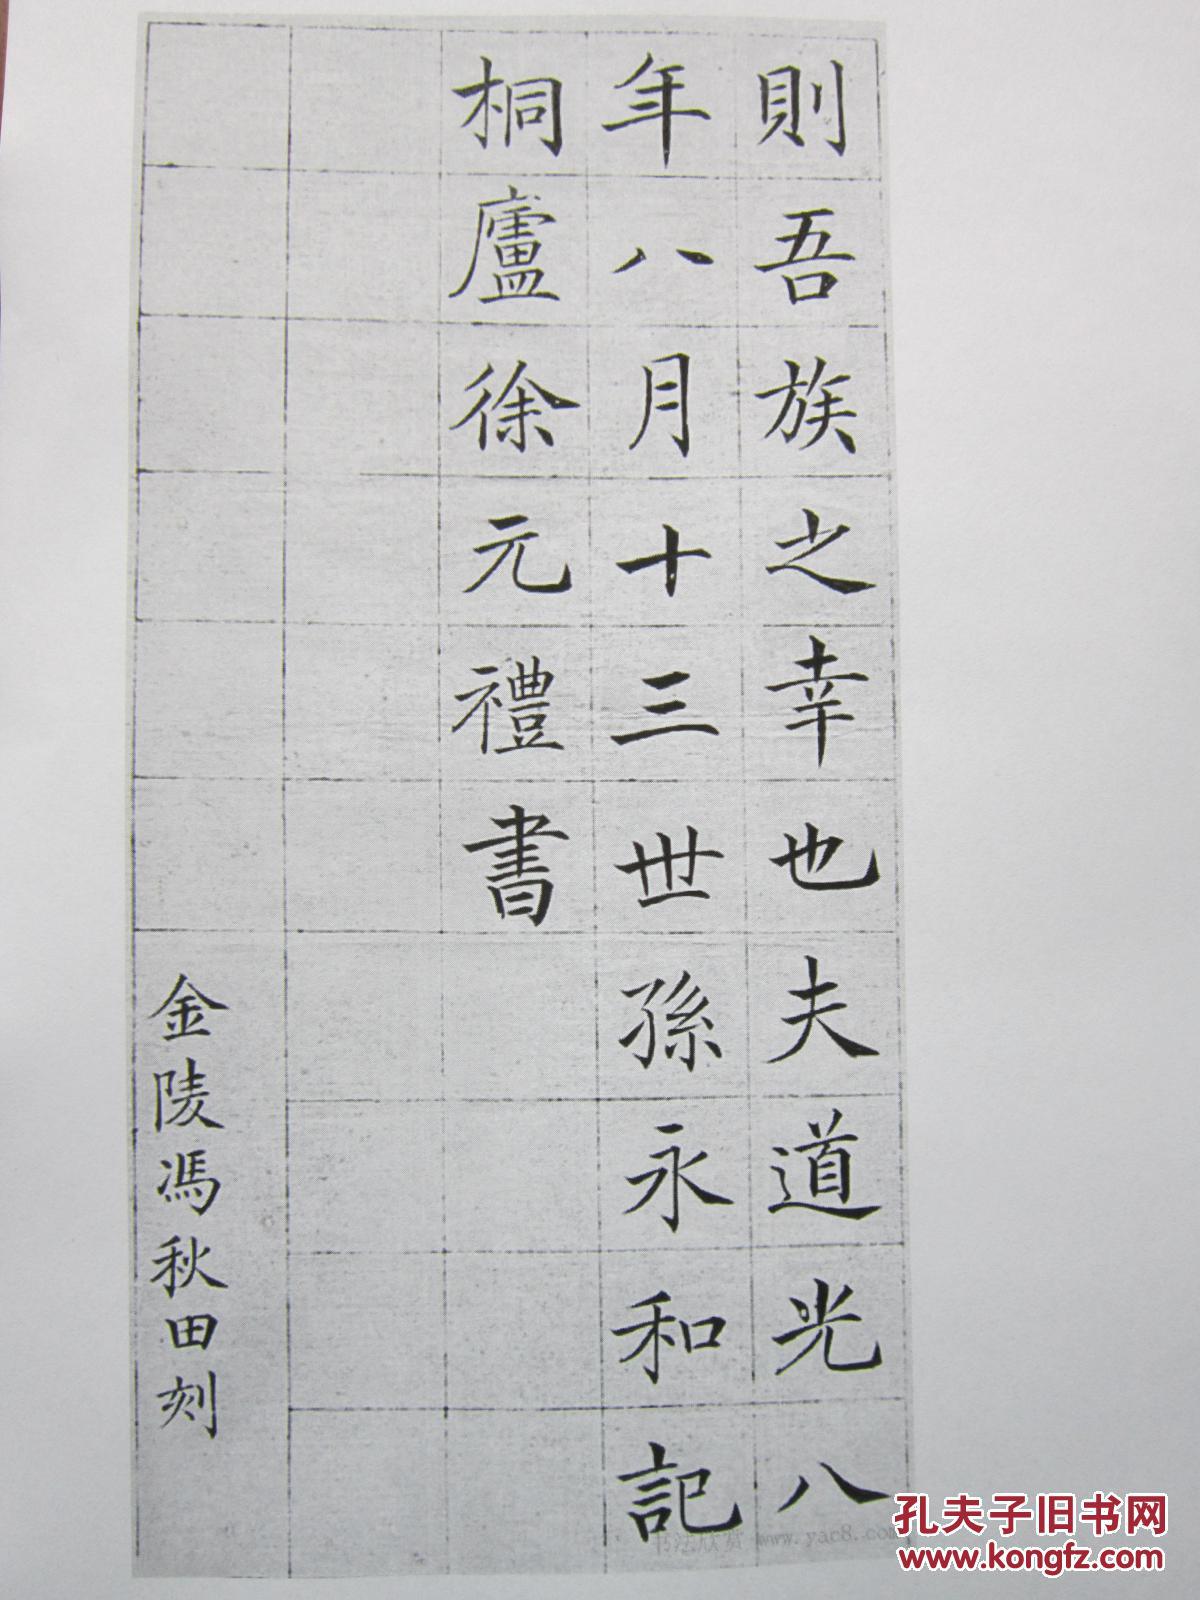 則吾族之幸也夫道光八
年八月十三世孫永和記
桐廬徐元禮書
金陵馮秋田刻
书法欣赏 www.yac8.com
孔夫子旧书网
www.kongfz.com